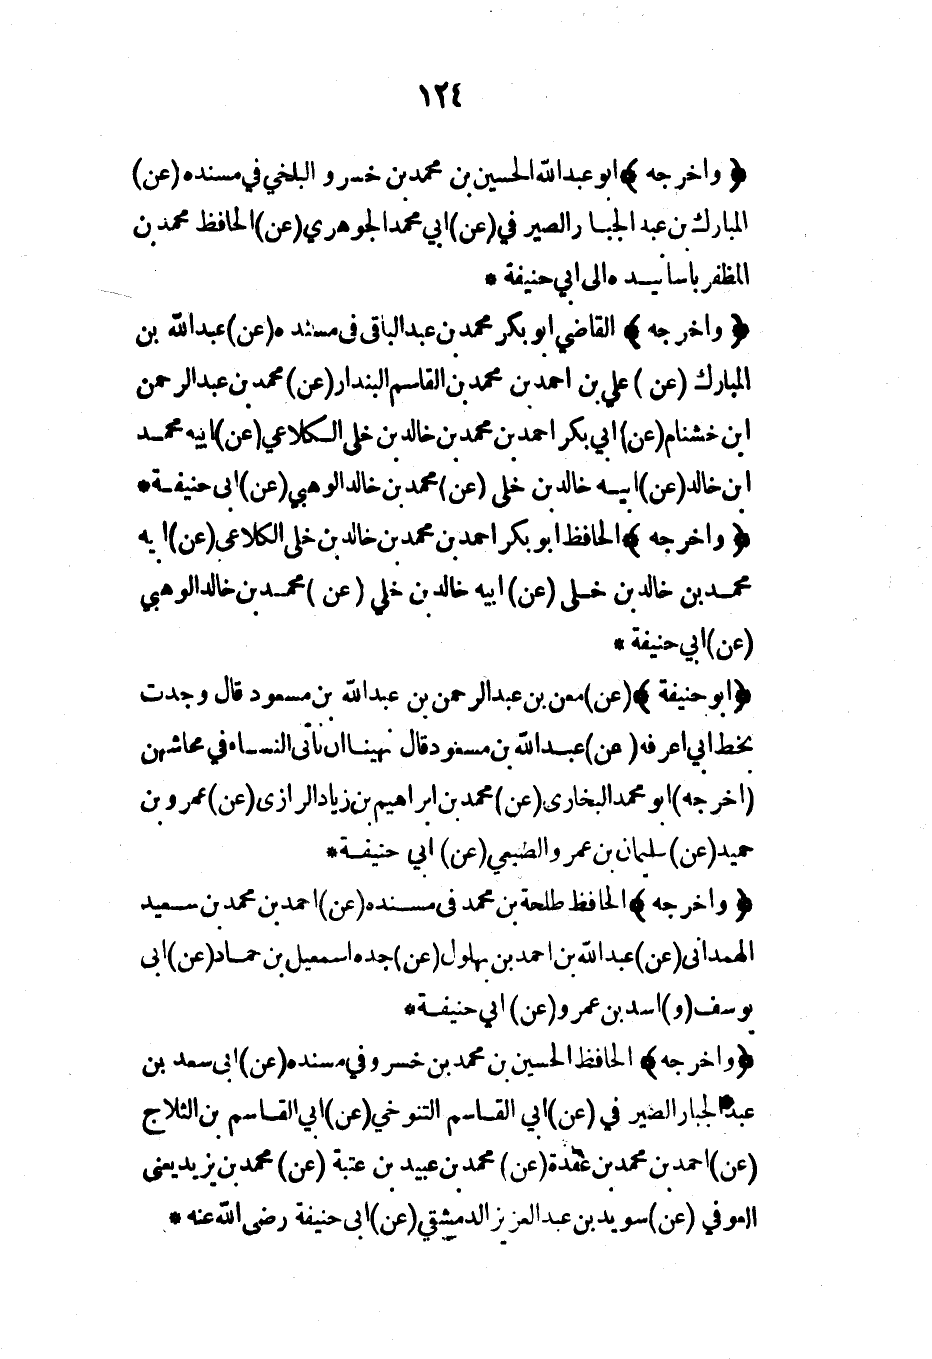 ١٢٤
﴿ واخرجه ﴾ ابو عبدالله الحسين بن محمد بن خسرو البلخي في مسنده (عن)
المبارك بن عبد الجبار الصير في (عن) ابي محمد الجوهري (عن) الحافظ محمد بن
المظفر باسانيده الى ابي حنيفة *
﴿ واخرجه ﴾ القاضي ابو بكر محمد بن عبدالباقى فى مسنده (عن) عبدالله بن
المبارك (عن) علي بن احمد بن محمد بن القاسم البندار (عن) محمد بن عبدالرحمن
ابن خشنام (عن) ابي بكر احمد بن محمد بن خالد بن خلى الكلاعي (عن) ابيه محمد
ابن خالد (عن) ابيه خالد بن خلى (عن) محمد بن خالد الوهبي (عن) ابى حنيفة *
﴿ واخرجه ﴾ الحافظ ابو بكر احمد بن محمد بن خالد بن خلى الكلاعى (عن) ابيه
محمد بن خالد بن خلى (عن) ابيه خالد بن خلي (عن) محمد بن خالد الوهبي
(عن) ابي حنيفة *
﴿ ابو حنيفة ﴾ (عن) معن بن عبدالرحمن بن عبدالله بن مسعود قال وجدت
بخط ابي اعرفه (عن) عبدالله بن مسعود قال نهينا ان نأتى النساء في محاشهن
(اخرجه) ابو محمد البخارى (عن) محمد بن ابراهيم بن زياد الرازى (عن) عمرو بن
حميد (عن) سليمان بن عمرو الضبعي (عن) ابي حنيفة *
﴿ واخرجه ﴾ الحافظ طلحة بن محمد فى مسنده (عن) احمد بن محمد بن سعيد
الهمدانى (عن) عبدالله بن احمد بن بهلول (عن) جده اسمعيل بن حماد (عن) ابى
يوسف (و) اسد بن عمرو (عن) ابي حنيفة *
﴿ واخرجه ﴾ الحافظ الحسين بن محمد بن خسرو في مسنده (عن) ابى سعد بن
عبدالجبار الصير في (عن) ابي القاسم التنوخي (عن) ابي القاسم بن الثلاج
(عن) احمد بن محمد بن عقدة (عن) محمد بن عبيد بن عتبة (عن) محمد بن يزيد يعنى
العوفي (عن) سويد بن عبدالعزيز الدمشقي (عن) ابى حنيفة رضى الله عنه *